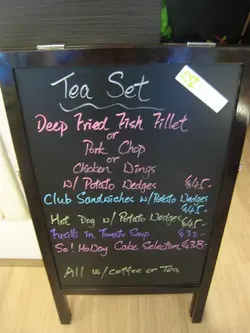 Tea Set
Deep Fried Fish Fillet
or
Pork Chop
or
Chicken Dings
w/ Potato Wedges $45.-
Club Sandwiches w/ Potato Wedges
$45.-
Hot Dog w/ Potato Wedges
$45.-
Fusilli in Tomato Soup $32.-
So! HoDay Cake Selection $38.-
All w/ coffee or Tea